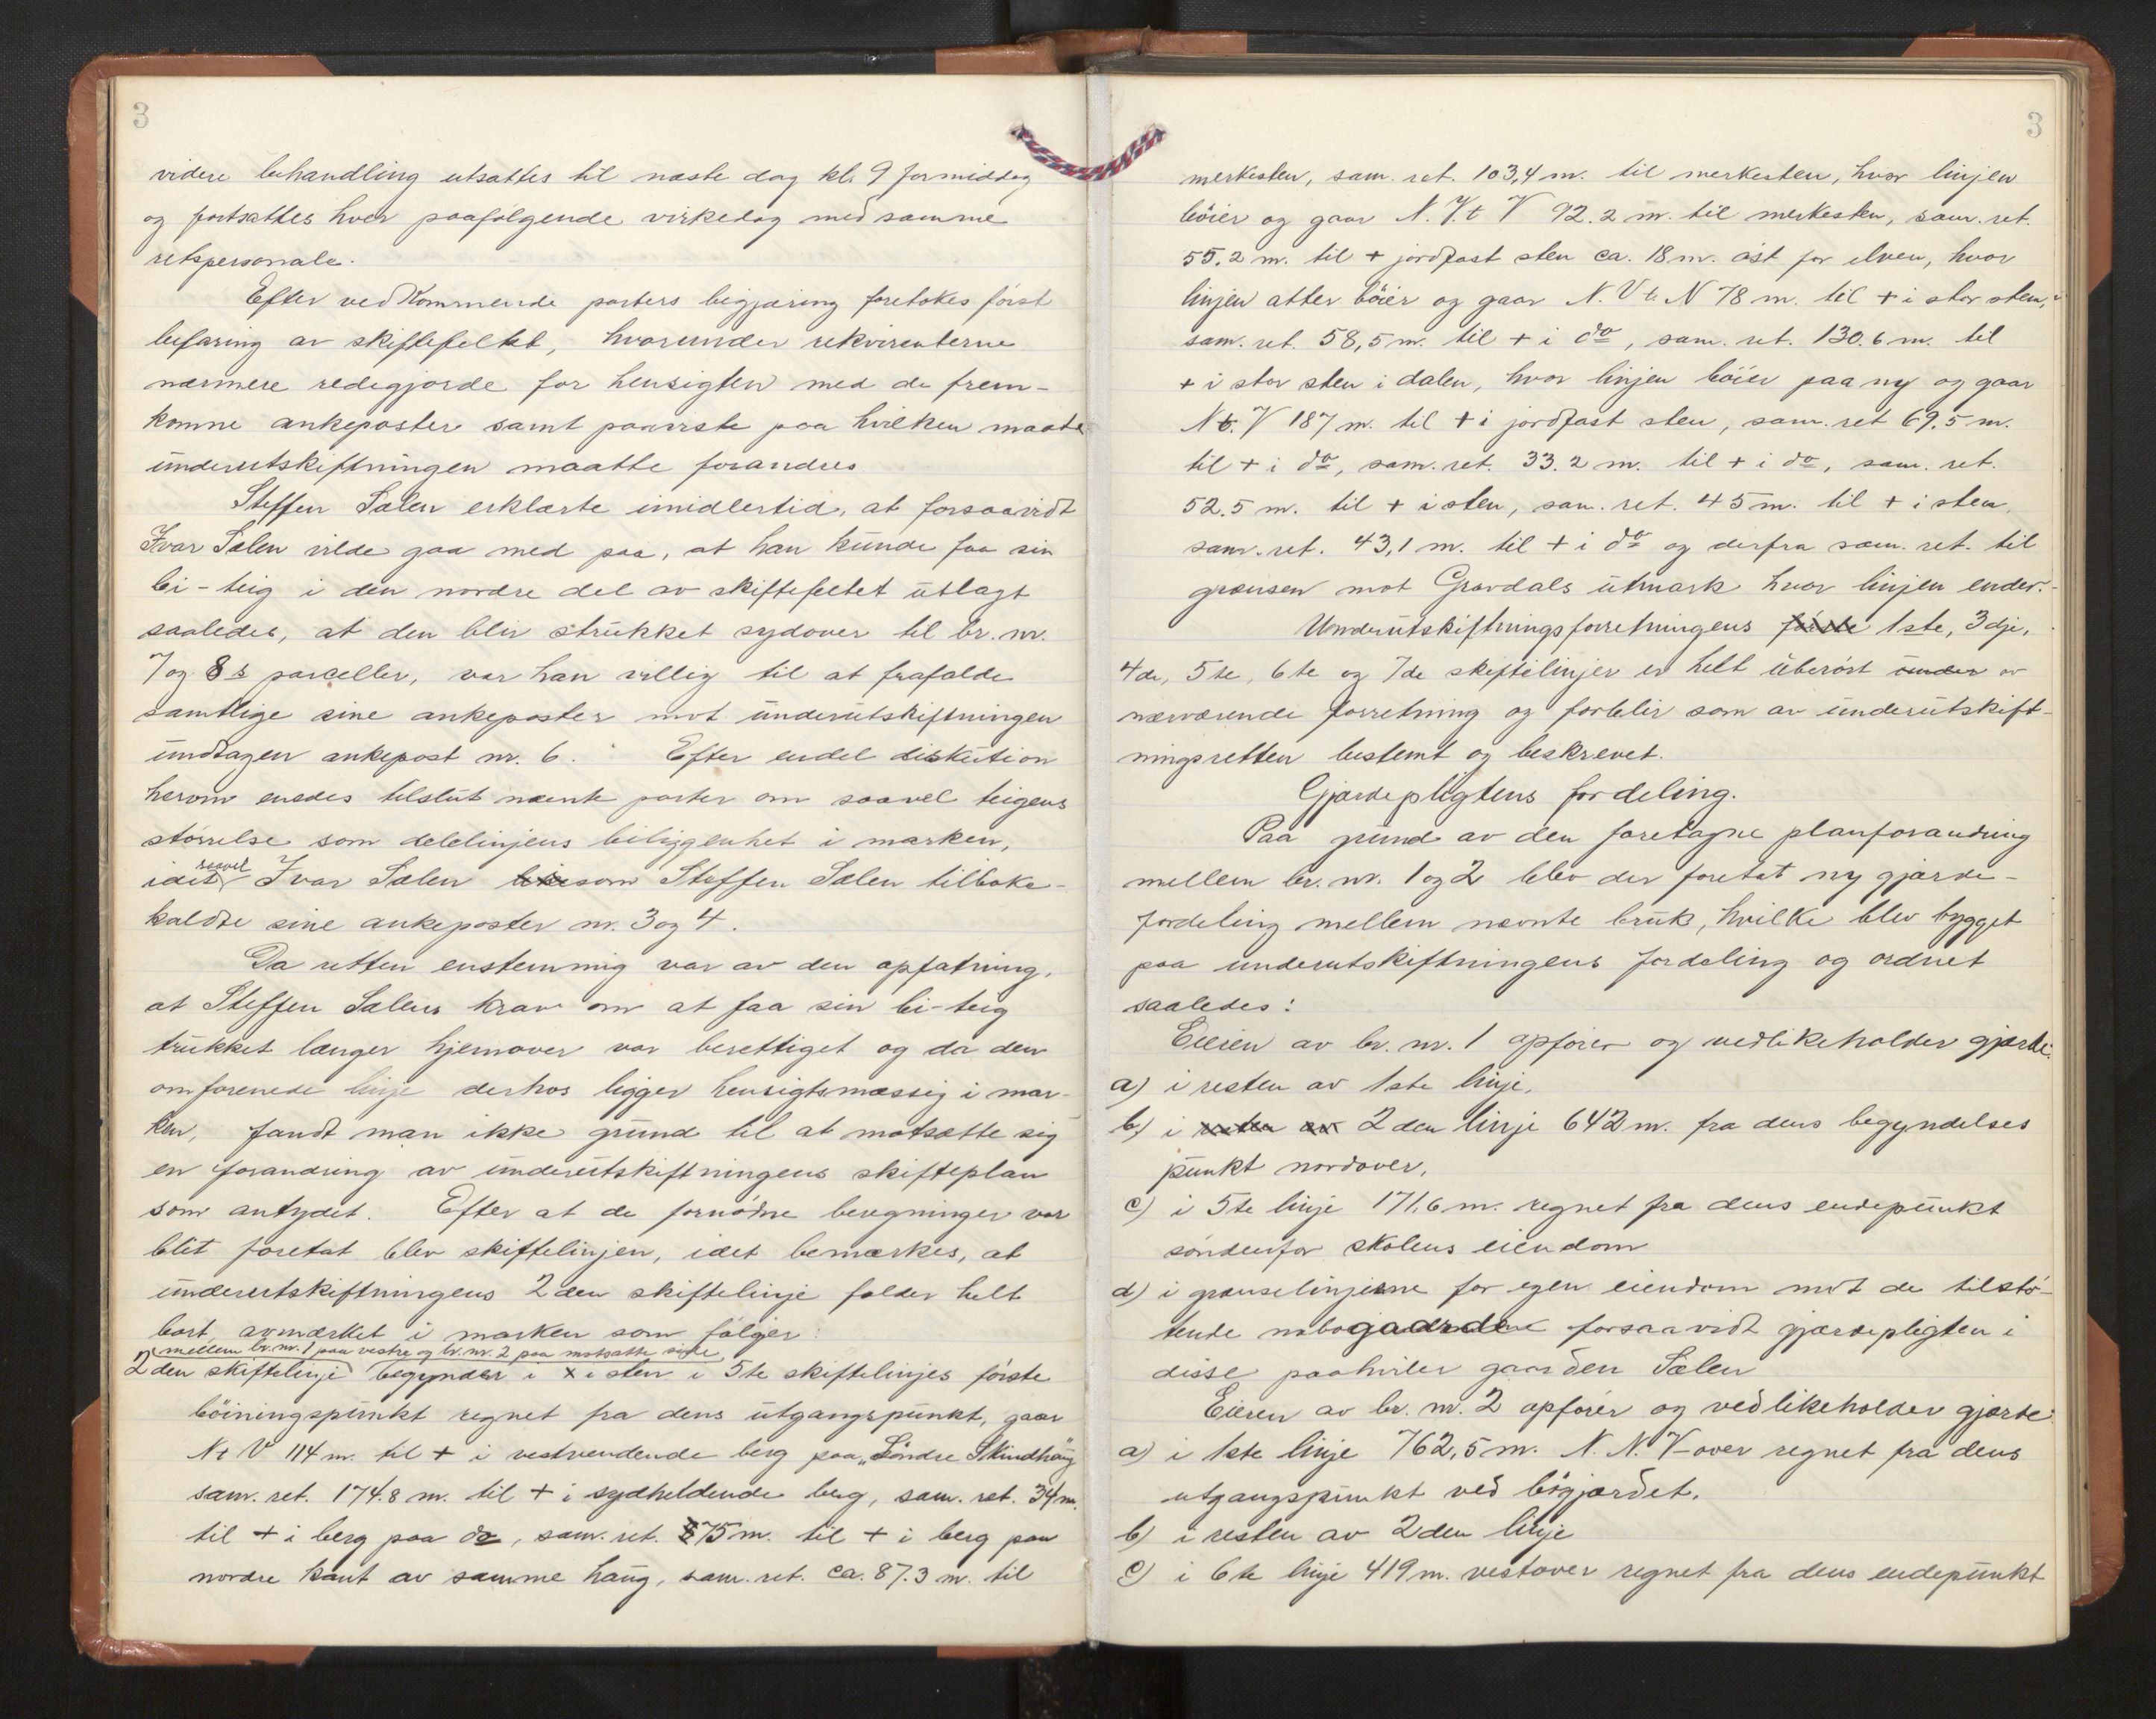 3
videre behandling utsattes til næste dag kl. 9 formiddag
og fortsattes hver paafølgende virkedag med samme
retspersonale.
Efter vedkommende parters begjæring foretokes først
befaring av skiftefeltet, hvorunder rekvirenterne
nærmere redegjorde for hensigten med de frem-
komne ankeposter samt paaviste paa hvilken maate
underutskiftningen maatte forandres
Steffen Sælen erklærte imidlertid, at forsaavidt
Ivar Sælen vilde gaa med paa, at han kunde faa sin
bi-teig i den nordre del av skiftefeltet utlagt
saaledes, at den blir strukket sydover til br. nr.
7 og 8s parceller, var han villig til at frafalde
samtlige sine ankeposter mot underutskiftningen
undtagen ankepost nr. 6. Efter endel diskution
herom enedes tilslut nævnte parter om saavel teigens
størrelse som delelinjens beliggenhet i marken,
idet saavel Ivar Sælen som Steffen Sælen tilbake-
kaldte sine ankeposter nr. 3 og 4.
Da retten enstemmig var av den opfatning,
at Steffen Sælens krav om at faa sin bi-teig
trukket længer hjemover var berettiget og da den
omforenede linje derhos ligger hensigtsmæssig i mar-
ken, fandt man ikke grund til at motsætte sig
en forandring av underutskiftningens skifteplan
som antydet. Efter at de fornødne beregninger var
blit foretat blev skiftelinjen, idet bemærkes, at
underutskiftningens 2den skiftelinje falder helt
bort, avmærket i marken som følger:
mellem br. nr. 1 paa vestre og br. nr. 2 paa motsatte side,
2den skiftelinje begynder i x i sten i 5te skiftelinjes første
böiningspunkt regnet fra dens utgangspunkt, gaar
N t V 114 m. til + i vestvendende berg paa „Söndre Skindhaug"
sam. ret. 174.8 m. til + i sydheldende berg, sam. ret. 34 m.
til + i berg paa do, sam. ret. 75 m. til + i berg paa
nordre kant av samme haug, sam. ret. ca. 87.3 m. til
3
merkesten, sam. ret. 103,4 m. til merkesten, hvor linjen
böier og gaar N. V. t V 92.2 m. til merkesten, sam. ret.
55.2 m. til + jordfast sten ca. 18 m. öst for elven, hvor
linjen atter böier og gaar N. V t. N 78 m. til + i stor sten,
sam. ret. 58,5 m. til + i do, sam. ret. 130.6 m. til
+ i stor sten i dalen, hvor linjen böier paa ny og gaar
N t. V 187 m. til + i jordfast sten, sam. ret 69.5 m.
til + i do, sam. ret. 33.2 m. til + i do, sam. ret.
52.5 m. til + i sten, sam. ret. 45 m. til + i sten,
sam. ret. 43,1 m. til + i do og derfra sam. ret. til
grænsen mot Gravdals utmark hvor linjen ender.
Underutskiftningsforretningens første 1ste, 3dje,
4de, 5te, 6te og 7de skiftelinjer er helt uberört under av
nærværende forretning og forblir som av underutskift-
ningsretten bestemt og beskrevet.
Gjærdepligtens fordeling.
Paa grund av den foretagne planforandring
mellem br. nr. 1 og 2 blev der foretat ny gjærde-
fordeling mellem nævnte bruk, hvilke blev bygget
paa underutskiftningens fordeling og ordnet
saaledes:
Eieren av br. nr. 1 opfører og vedlikeholder gjærde:
a) i resten av 1ste linje,
b) i resten av 2den linje 642 m. fra dens begyndelses
punkt nordover,
c) i 5te linje 171,6 m. regnet fra dens endepunkt
söndenfor skolens eiendom
d) i grænselinjerne for egen eiendom mot de tilstö-
tende nabogaarde forsaavidt gjærdepligten i
disse paahviler gaarden Sælen
Eieren av br. nr. 2 opfører og vedlikeholder gjærde:
a) i 1ste linje 762,5 m. N. N. V-over regnet fra dens
utgangspunkt ved bögjærdet.
b) i resten av 2den linje
c) i 6te linje 419 m. vestover regnet fra dens endepunkt